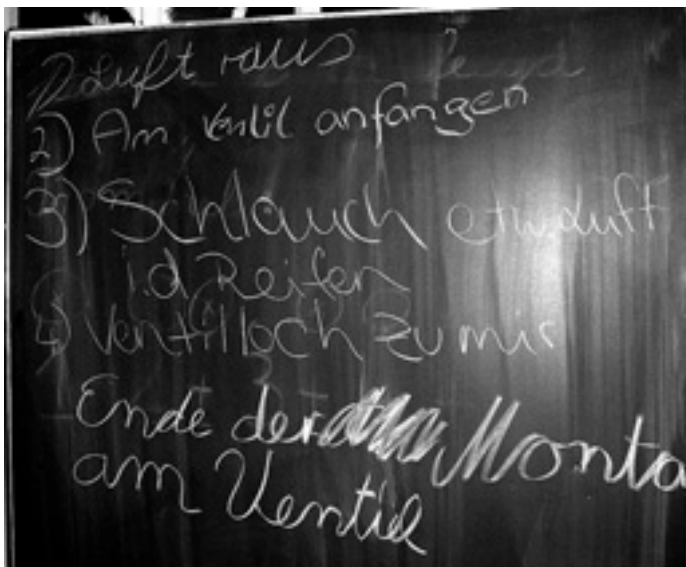 1) Luft raus
2) Am Ventil anfangen
3) Schlauch etw. Luft
i.d. Reifen
4) Ventilloch zu mir
Ende der Monta
am Ventil